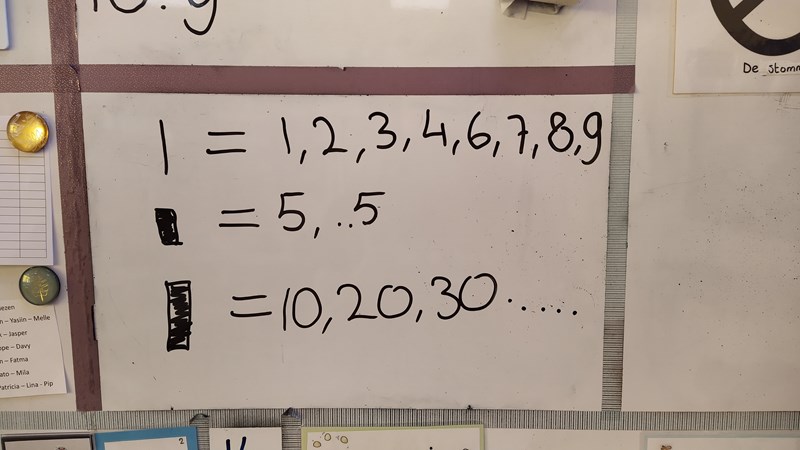 De stomm
| = 1,2,3,4,6,7,8,9
= 5,..5
=10,20,30.....
ezen
n – Yasiin – Melle
– Jasper
ope – Davy
n – Fatma
ato – Mila
Patricia – Lina - Pip
2